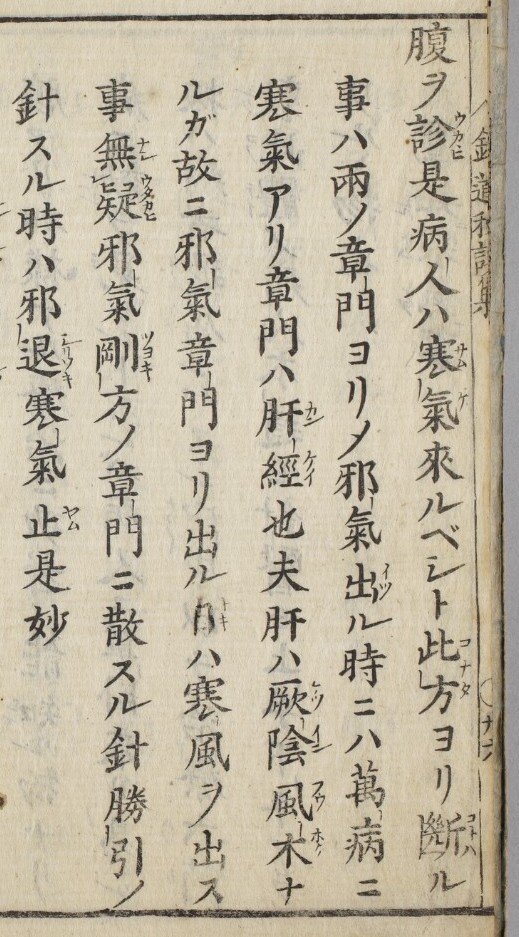 腹ヲ診是病人ハ寒氣來ルベシト此方ヨリ斷ル
事ハ兩ノ章門ヨリメ邪氣出ル時ニハ萬病ニ
寒氣アリ章門ハ肝經也夫肝ハ厥陰風木ナ
ルガ故ニ邪氣章門ヨリ出ル時ハ寒風ヲ出ス
事無疑邪氣剛方ノ章門ニ散スル針勝引ノ
針スル時ハ邪退寒氣止是妙